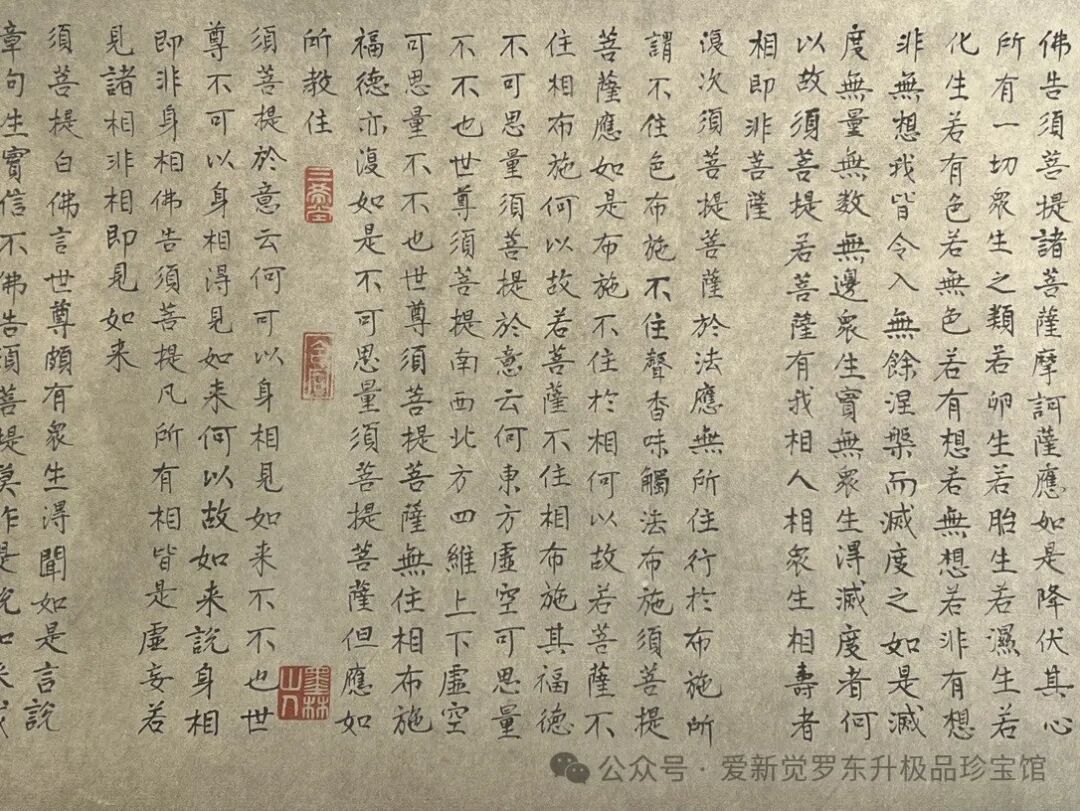 佛告須菩提諸菩薩摩訶薩應如是降伏其心
所有一切衆生之類若卵生若胎生若濕生若
化生若有色若無色若有想若無想若非有想
非無想我皆令入無餘涅槃而滅度之如是滅
度無量無数無邊衆生實無衆生得滅度者何
以故須菩提若菩薩有我相人相衆生相壽者
相即非菩薩
復次須菩提菩薩於法應無所住行於布施所
謂不住色布施不住聲香味觸法布施須菩提
菩薩應如是布施不住於相何以故若菩薩不
住相布施何以故若菩薩不住相布施其福德
不可思量須菩提於意云何東方虛空可思量
不不也世尊須菩提南西北方四維上下虛空
可思量不不也世尊須菩提菩薩無住相布施
福德亦復如是不可思量須菩提菩薩但應如
所教住
須菩提於意云何可以身相見如来不不也世
尊不可以身相得見如来何以故如来說身相
即非身相佛告須菩提凡所有相皆是虛妄若
見諸相非相即見如来
須菩提白佛言世尊頗有衆生得聞如是言說
章句生實信不佛告須菩提莫作是說如来滅
三希堂
墨林山人
公众号·爱新觉罗东升极品珍宝馆